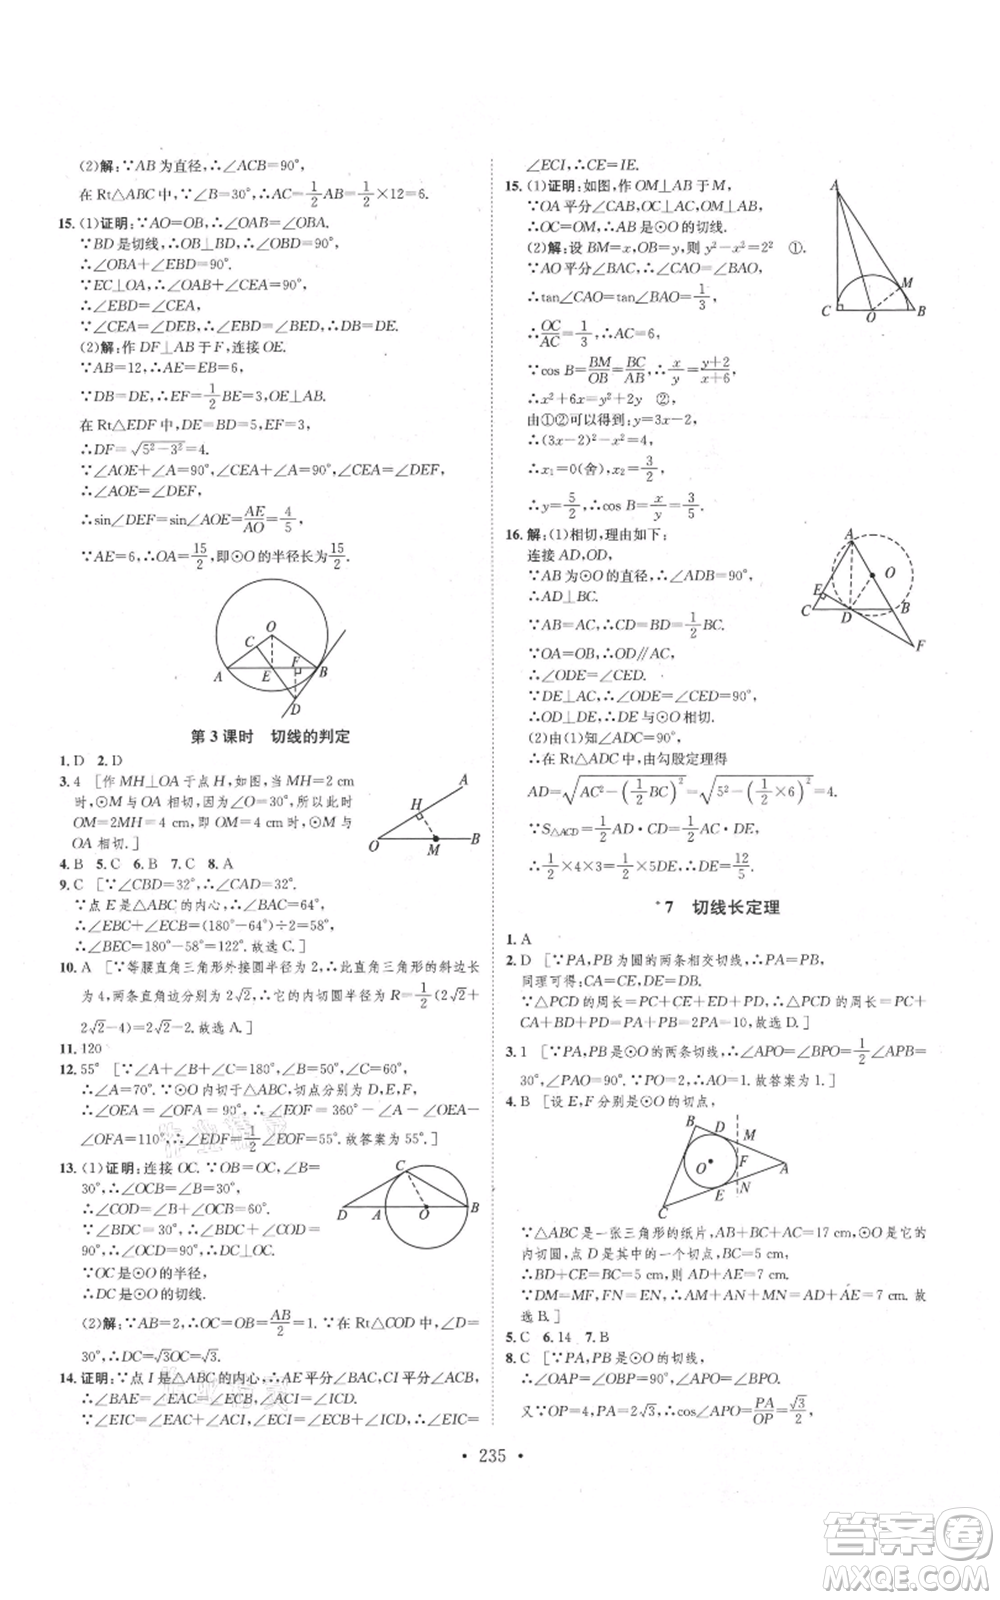 (2)解:∵AB为直径,∴∠ACB=90°,
在Rt△ABC中,∵∠B=30°,∴AC=1/2AB=1/2×12=6.
15.(1)证明:∵AO=OB,∴∠OAB=∠OBA.
∵BD是切线,∴OB⊥BD,∴∠OBD=90°,
∴∠OBA+∠EBD=90°.
∵EC⊥OA,∴∠CAE+∠CEA=90°,
∴∠EBD=∠CEA.
∵∠CEA=∠DEB,∴∠EBD=∠BED,∴DB=DE.
(2)解:作DF⊥AB于F,连接OE.
∵AB=12,∴AE=EB=6,
∵DB=DE,∴EF=1/2BE=3,OE⊥AB.
在Rt△EDF中,DE=BD=5,EF=3,
∴DF=√(5²-3²)=4.
∵∠AOE+∠A=90°,∠CEA+∠A=90°,∠CEA=∠DEF,
∴∠AOE=∠DEF,
∴sin∠DEF=sin∠AOE=AE/AO=4/5,
∵AE=6,∴OA=15/2,即⊙O的半径长为15/2.
O
C
F
A
E
B
D
第3课时 切线的判定
1.D 2.D
3.4 [作MH⊥OA于点H,如图,当MH=2 cm
时,⊙M与OA相切,因为∠O=30°,所以此时
OM=2MH=4 cm,即OM=4 cm时,⊙M与
OA相切.]
A
H
O
M
B
4.B 5.C 6.B 7.C 8.A
9.C [∵∠CBD=32°,∴∠CAD=32°.
∵点E是△ABC的内心,∴∠BAC=64°,
∴∠EBC+∠ECB=(180°-64°)÷2=58°,
∴∠BEC=180°-58°=122°.故选C.]
10.A [∵等腰直角三角形外接圆半径为2,∴此直角三角形的斜边长
为4,两条直角边分别为2√2,∴它的内切圆半径为R=1/2(2√2+
2√2-4)=2√2-2.故选A.]
11.120
12.55° [∵∠A+∠B+∠C=180°,∠B=50°,∠C=60°,
∴∠A=70°.∵⊙O内切于△ABC,切点分别为D,E,F,
∴∠OEA=∠OFA=90°,∴∠EOF=360°-∠A-∠OEA-
∠OFA=110°,∴∠EDF=1/2∠EOF=55°.故答案为55°.]
13.(1)证明:连接OC.∵OB=OC,∠B=
30°,∴∠OCB=∠B=30°.
∴∠COD=∠B+∠OCB=60°.
∵∠BDC=30°,∴∠BDC+∠COD=
90°,∴∠OCD=90°,∴DC⊥OC.
∵OC是⊙O的半径,
∴DC是⊙O的切线.
C
D
A
O
B
(2)解:∵AB=2,∴OC=OB=AB/2=1.∵在Rt△COD中,∠BDC=
30°,∴DC=√3OC=√3.
14.证明:∵点I是△ABC的内心,∴AE平分∠BAC,CI平分∠ACB,
∴∠BAE=∠CAE,∠ACI=∠BCI=∠ICD.
∵∠EIC=∠EAC+∠ACI,∠ECI=∠EAC+∠ICD,∴∠EIC=
∠ECI,∴CE=IE.
15.(1)证明:如图,作OM⊥AB于M,
∵OA平分∠CAB,OC⊥AC,OM⊥AB,
∴OC=OM,∴AB是⊙O的切线.
(2)解:设BM=x,OB=y,则y²-x²=2² ①.
∵AO平分∠BAC,∴∠CAO=∠BAO,
∴tan∠CAO=tan∠BAO=1/3,
∴OC/AC=1/3,∴AC=6,
∵cos B=BM/OB=BC/AB,∴x/y=(y+2)/(x+6),
∴x²+6x=y²+2y ②,
由①②可以得到:y=3x-2,
∴(3x-2)²-x²=4,
∴x₁=0(舍),x₂=3/2,
∴y=5/2,∴cos B=x/y=3/5.
A
M
C
O
B
16.解:(1)相切,理由如下:
连接AD,OD,
∵AB为⊙O的直径,∴∠ADB=90°,
∴AD⊥BC.
∵AB=AC,∴CD=BD=1/2BC.
∵OA=OB,∴OD∥AC.
∴∠ODE=∠CED.
∵DE⊥AC,∴∠ODE=∠CED=90°,
∴OD⊥DE,∴DE与⊙O相切.
A
O
E
C
D
B
F
(2)由(1)知∠ADC=90°,
∴在Rt△ADC中,由勾股定理得
AD=√(AC²-(1/2BC)²)=√(5²-(1/2×6)²)=4.
∵S△ACD=1/2AD·CD=1/2AC·DE,
∴1/2×4×3=1/2×5DE,∴DE=12/5.
*7 切线长定理
1.A
2.D [∵PA,PB为圆的两条相交切线,∴PA=PB,
同理可得:CA=CE,DE=DB.
∵△PCD的周长=PC+CE+ED+PD,∴△PCD的周长=PC+
CA+BD+PD=PA+PB=2PA=10,故选D.]
3.1 [∵PA,PB是⊙O的两条切线,∴∠APO=∠BPO=1/2∠APB=
30°,∠PAO=90°,∴AO=1/2PO=1.故答案为1.]
4.B [设E,F分别是⊙O的切点,
B
D
M
F
A
O
E
N
C
∵△ABC是一张三角形的纸片,AB+BC+AC=17 cm,⊙O是它的
内切圆,点D是其中的一个切点,BC=5 cm,
∴BD+CE=BC=5 cm,则AD+AE=7 cm,
∵DM=MF,FN=EN,∴AM+AN+MN=AD+AE=7 cm.故
选B.]
5.C 6.14 7.B
8.C [∵PA,PB是⊙O的切线,
∴∠OAP=∠OBP=90°,
又∵OP=4,PA=2√3,∴cos∠APO=PA/OP=√3/2,
• 235 •
答案圈
MXQE.COM